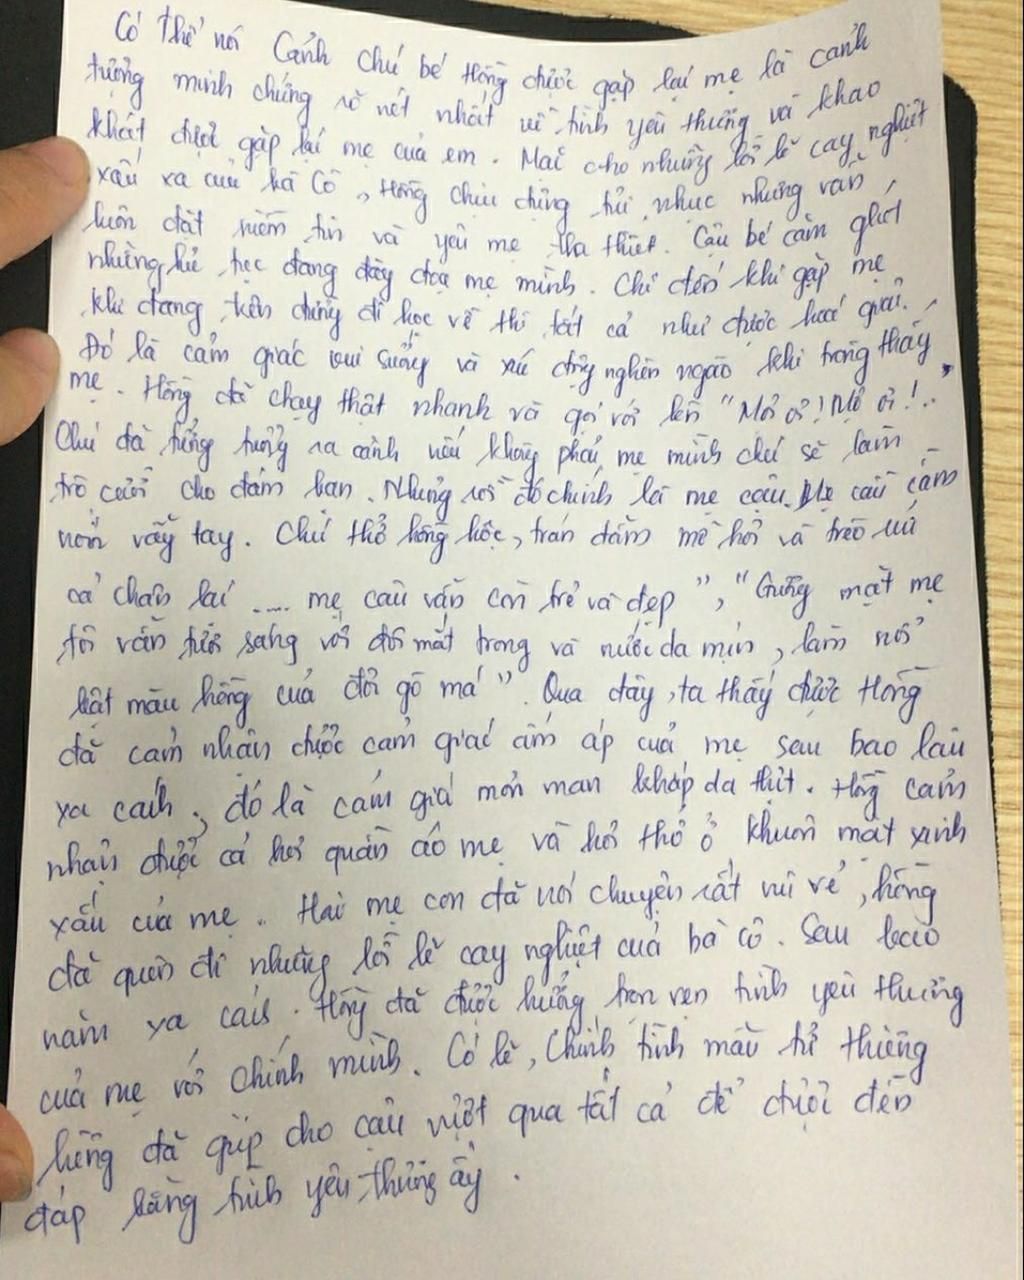 Có thể nói Cảnh chú bé Hồng được gặp lại mẹ là cảnh
tượng minh chứng rõ nét nhất về tình yêu thương và khao
khát được gặp lại mẹ của em. Mặc cho những lời lẽ cay nghiệt
xấu xa của bà Cô, Hồng chịu đựng tủi nhục nhưng vẫn
luôn đặt niềm tin và yêu mẹ tha thiết. Cậu bé căm ghét
những hủ tục đang đày đoạ mẹ mình. Chỉ đến khi gặp mẹ
khi đang trên đường đi học về thì tất cả như được hoá giải.
Đó là cảm giác vui sướng và xúc động nghẹn ngào khi trông thấy
mẹ. Hồng đã chạy thật nhanh và gọi với lên "Mợ ơi! Mợ ơi!..
Chú đã tưởng tượng ra cảnh nếu không phải mẹ mình chú sẽ làm
trò cười cho đám bạn. Nhưng rồi đó chính là mẹ cậu. Mẹ cậu cầm
nón vẫy tay. Chú thở hồng hộc, trán đẫm mồ hôi và trèo
cả chân lại ..... mẹ cậu vẫn còn trẻ và đẹp", "Gương mặt mẹ
tôi vẫn tươi sáng với đôi mắt trong và nước da mịn, làm nổi
bật màu hồng của đôi gò má". Qua đây, ta thấy được Hồng
đã cảm nhận được cảm giác ấm áp của mẹ sau bao lâu
xa cách, đó là cảm giá mơn man khắp da thịt. Hồng cảm
nhận được cả hơi quần áo mẹ và hơi thở ở khuôn mặt xinh
xắn của mẹ. Hai mẹ con đã nói chuyện rất vui vẻ, hồng
đã quên đi những lời lẽ cay nghiệt của bà cô. Sau bao
năm xa cách. Hồng đã được hưởng trọn vẹn tình yêu thương
của mẹ với chính mình. Có lẽ, Chính tình mẫu tử thiêng
liêng đã giúp cho cậu vượt qua tất cả để được đền
đáp bằng tình yêu thương ấy.